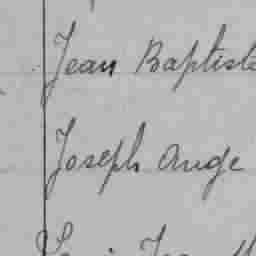 Jean Baptiste
Joseph Ange